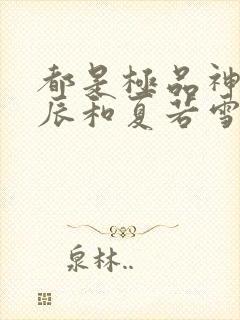 都是極品神
辰和夏若雪
泉林..